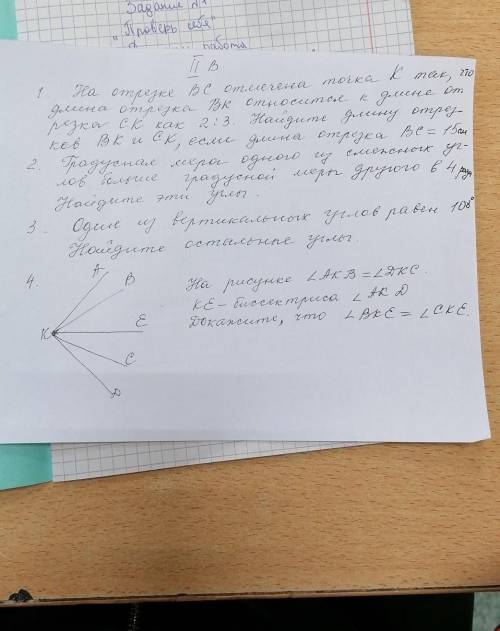 Задание №1
"Проверь себя"
работа
II В
1. На отрезке ВС отмечена точка К так, что
длина отрезка ВК относится к длине от
резка СК как 2:3. Найдите длину отрез-
ков ВК и СК, если длина отрезка ВС = 15см
2. Градусная мера одного из смежных уг-
лов больше градусной меры другого в 4 раза
Найдите эти углы.
3. Один из вертикальных углов равен 108°
Найдите остальные углы.
4. На рисунке ∠АКВ = ∠DКС.
КЕ - биссектриса ∠АКD
Докажите, что ∠ВКЕ = ∠СКЕ.
А
В
К
Е
С
D